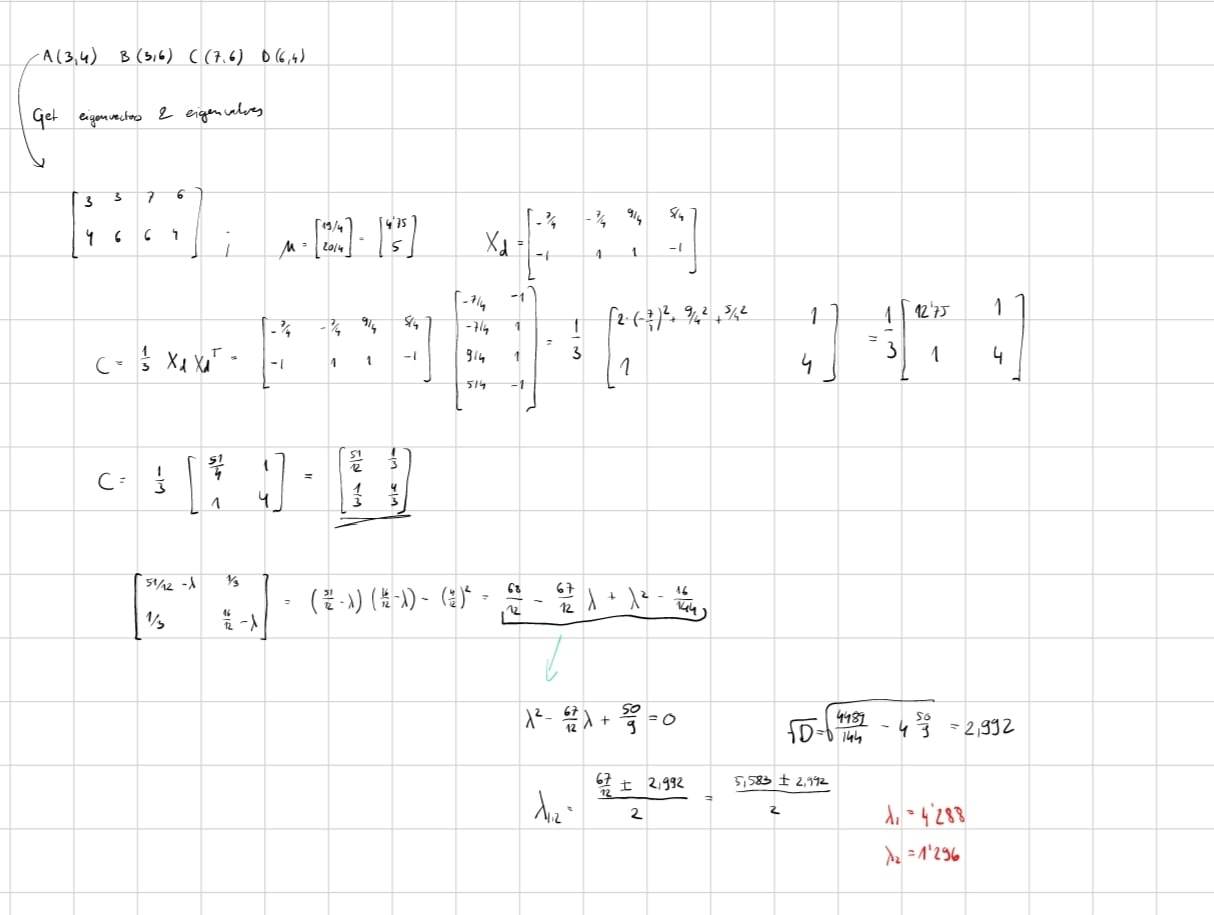 A(3,4) B(3,6) C(7,6) D(6,4)
Get eigenvectors & eigenvalues
[3 3 7 6; 4 6 6 4] ; μ = [19/4; 20/4] = [4'75; 5] Xd = [-7/4 -7/4 9/4 5/4; -1 1 1 -1]
C = 1/3 Xd Xd^T = [-7/4 -7/4 9/4 5/4; -1 1 1 -1] [-7/4 -1; -7/4 1; 9/4 1; 5/4 -1] = 1/3 [2·(-7/4)² + 9/4² + 5/4² 1; 1 4] = 1/3 [12'75 1; 1 4]
C = 1/3 [51/4 1; 1 4] = [51/12 1/3; 1/3 4/3]
[51/12 -λ 1/3; 1/3 16/12 -λ] = (51/12 -λ)(16/12 -λ) - (4/12)² = 68/12 - 67/12 λ + λ² - 16/144
λ² - 67/12 λ + 50/9 = 0 √D = √(4489/144 - 4 50/9) = 2,992
λ1,2 = (67/12 ± 2,992)/2 = (5,583 ± 2,992)/2
λ1 = 4'288
λ2 = 1'296